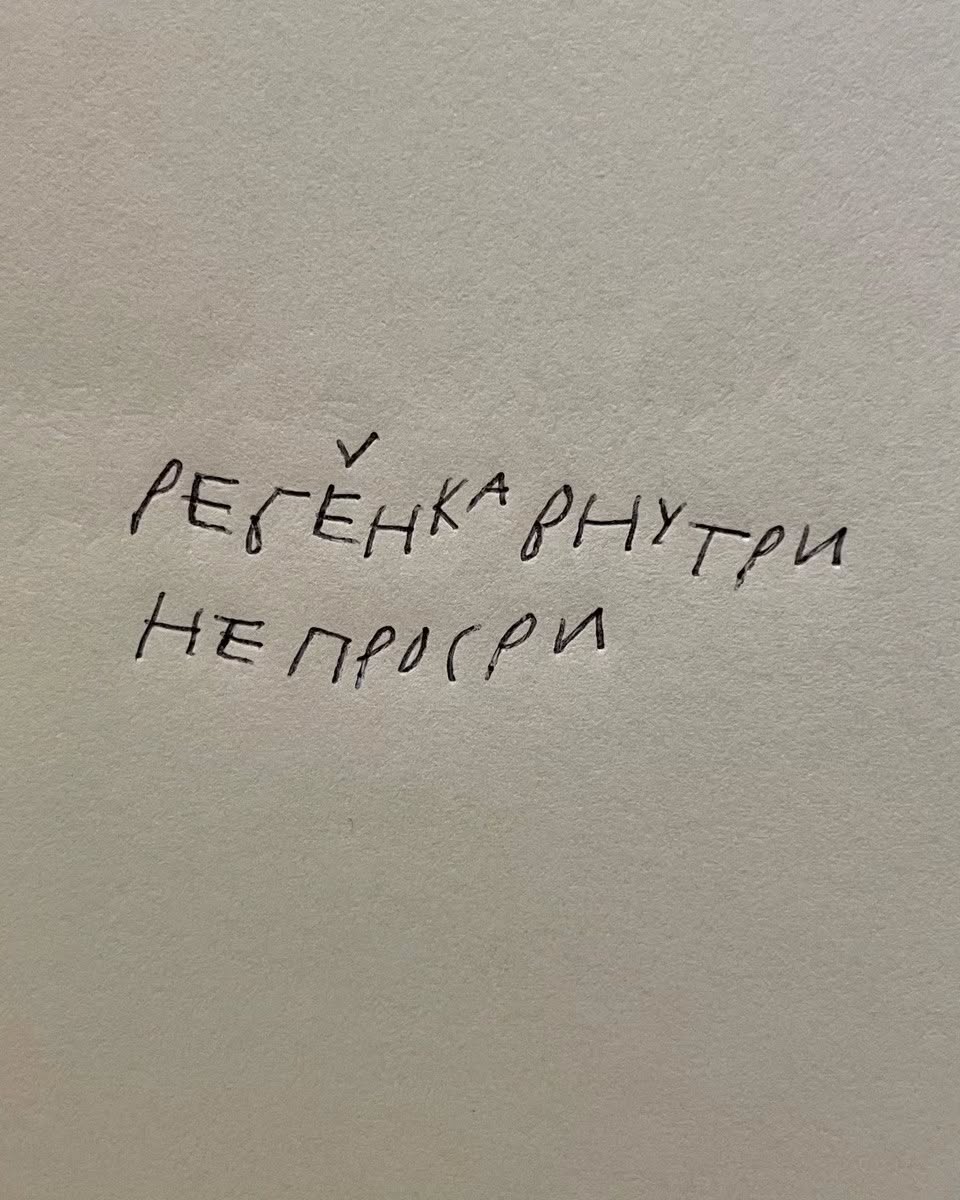 РЕБЁНКА ВНУТРИ
НЕ ПРОСРИ